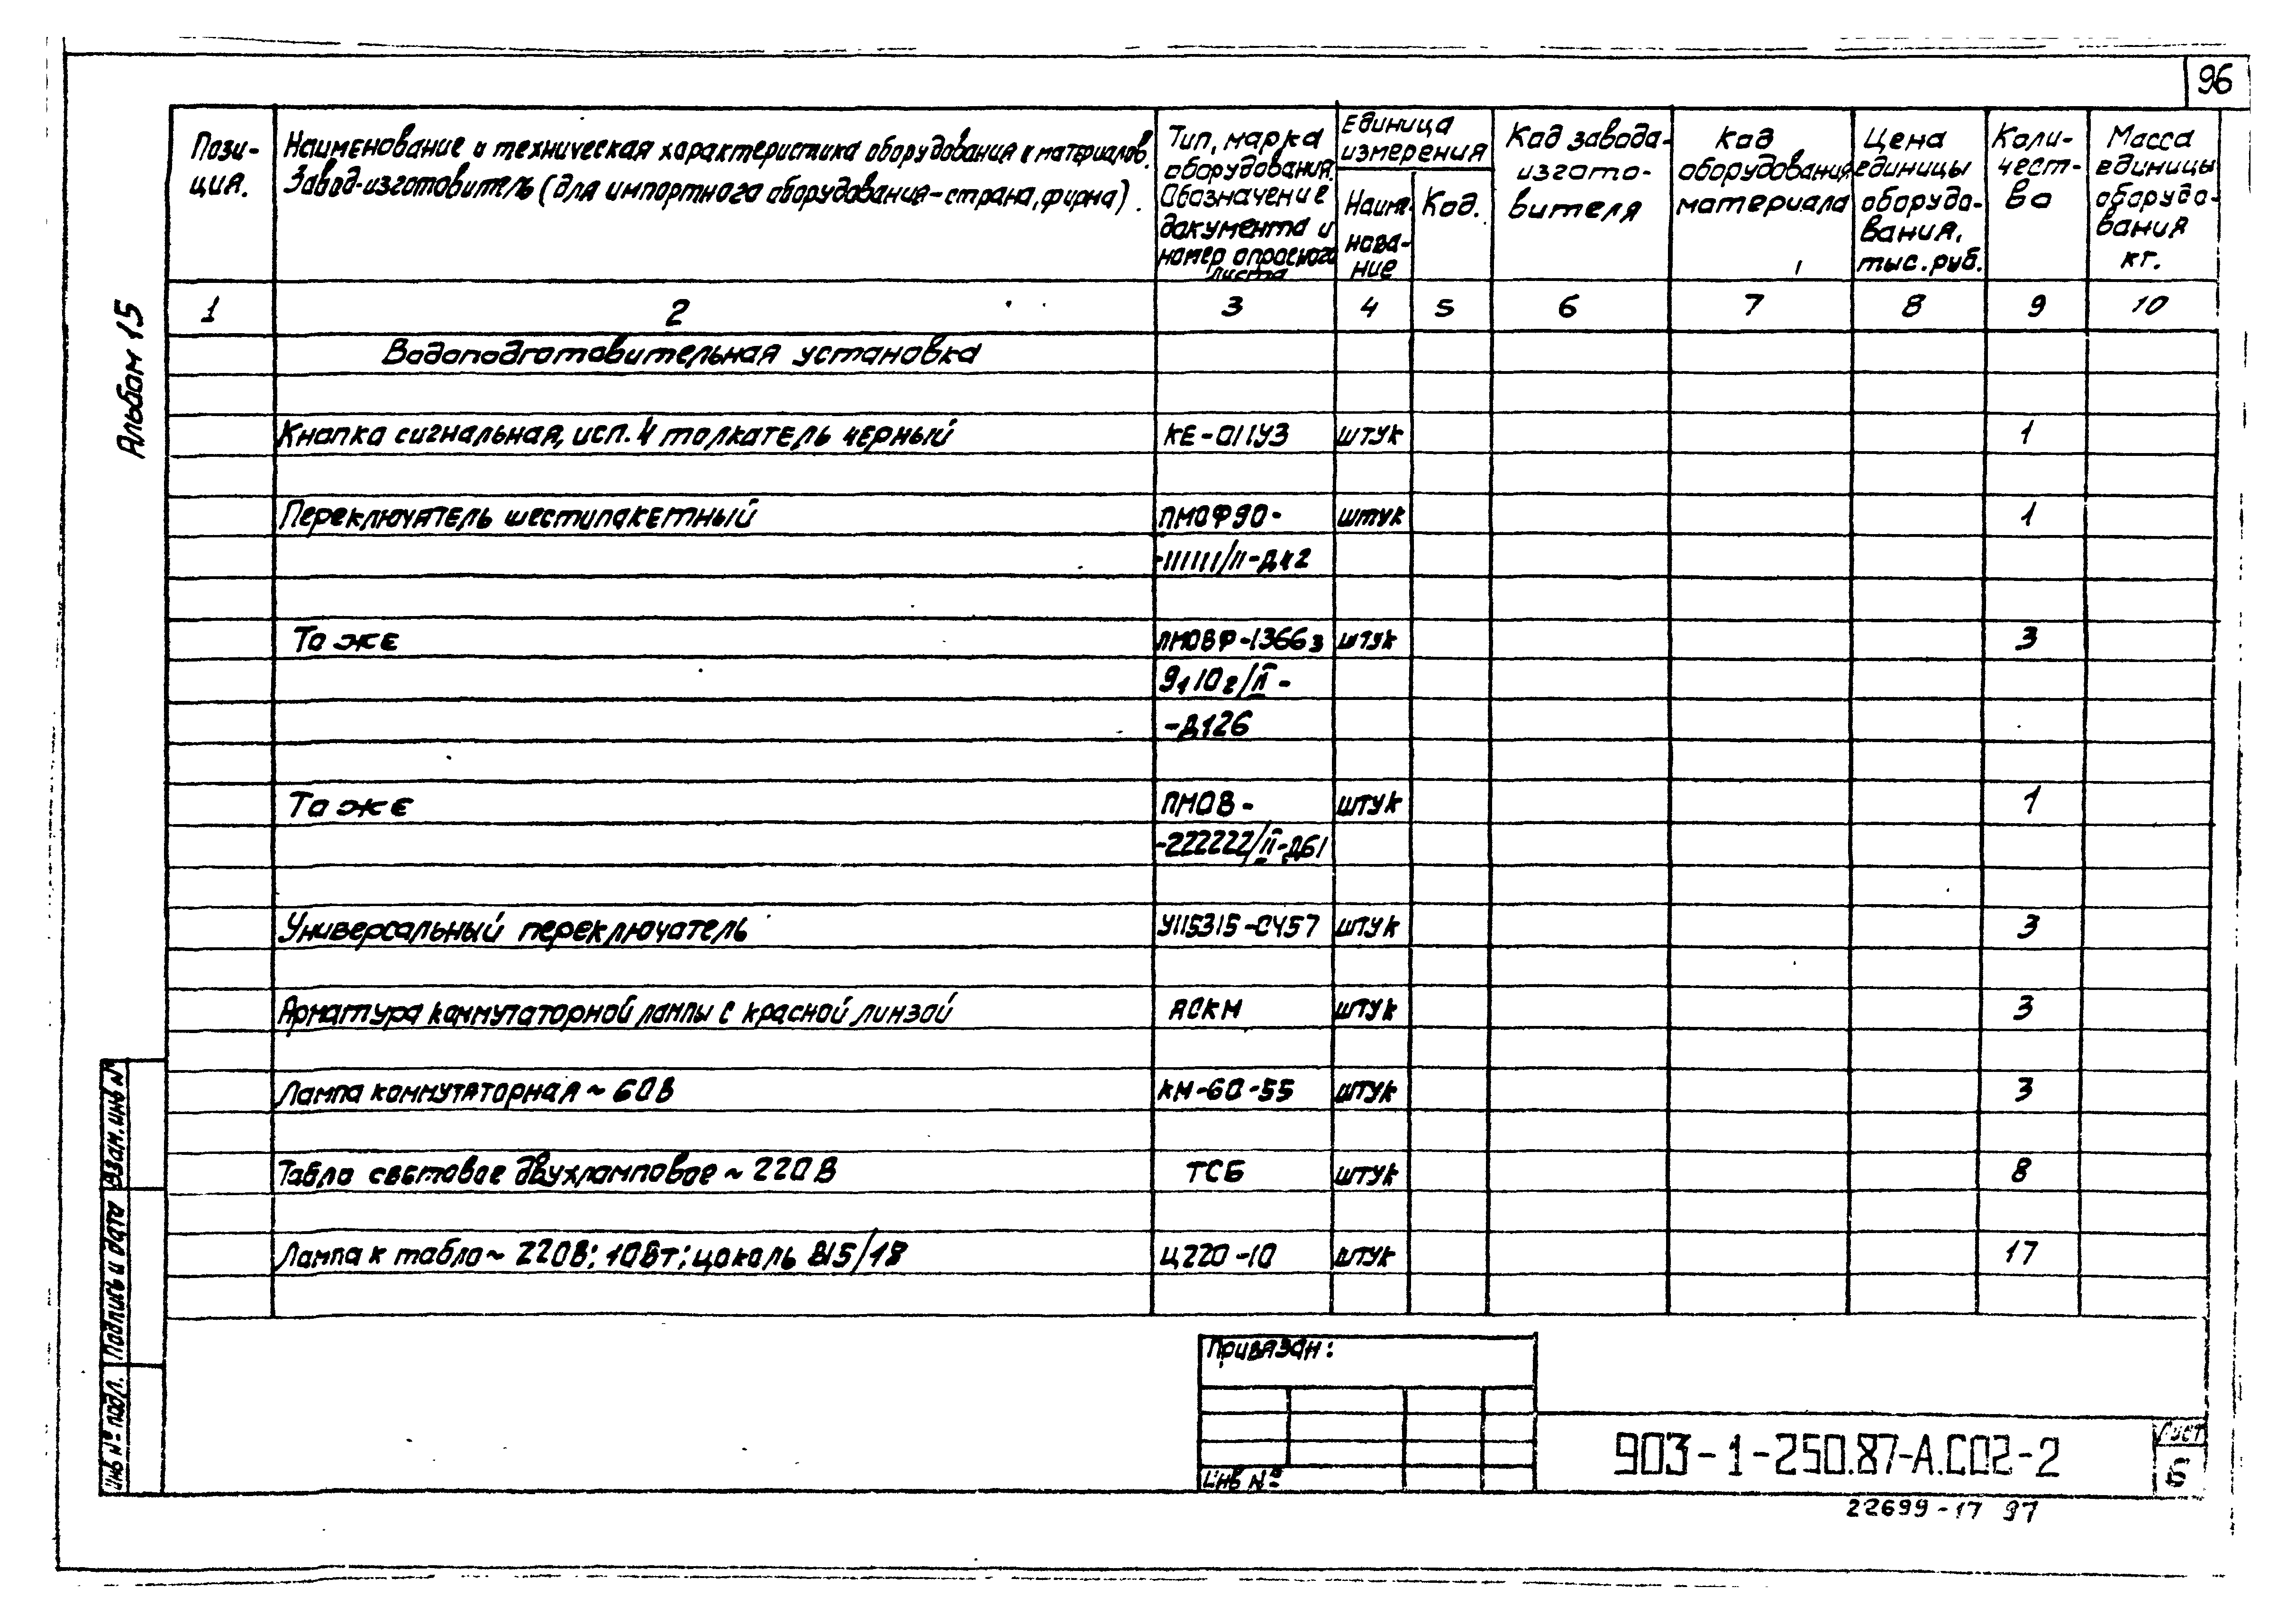 96
Пози-
ция.
Наименование и техническая характеристика оборудования и материалов.
Завод-изготовитель (для импортного оборудования-страна, фирма).
Тип, марка
оборудования.
Обозначение
документа и
номер опросного
листа
Единица
измерения
Наиме-
нова-
ние
Код.
Код завода-
изгото-
вителя
Код
оборудования
материала
Цена
единицы
оборудо-
вания,
тыс. руб.
Коли-
чест-
во
Масса
единицы
оборудо-
вания
кг.
1 2 3 4 5 6 7 8 9 10
Водоподготовительная установка
Кнопка сигнальная, исп. 4 толкатель черный КЕ-011У3 штук 1
Переключатель шестипакетный ПМОФ90- штук 1
-111111/II-Д42
То же ПМОВФ-13663 штук 3
91102/II-
-Д126
То же ПМОВ- штук 1
-222222/II-Д61
Универсальный переключатель УП5315-С457 штук 3
Арматура коммутаторной лампы с красной линзой АСКМ штук 3
Лампа коммутаторная ~ 60В КМ-60-55 штук 3
Табло световое двухламповое ~ 220В ТСБ штук 8
Лампа к табло ~ 220В; 10Вт; цоколь В15/18 Ц220-10 штук 17
Альбом 15
Взам. инв №
Подпись и дата
Инв № подл.
Привязан:
Инв №
903-1-250.87-А.С02-2
Лист
6
22699-17 97